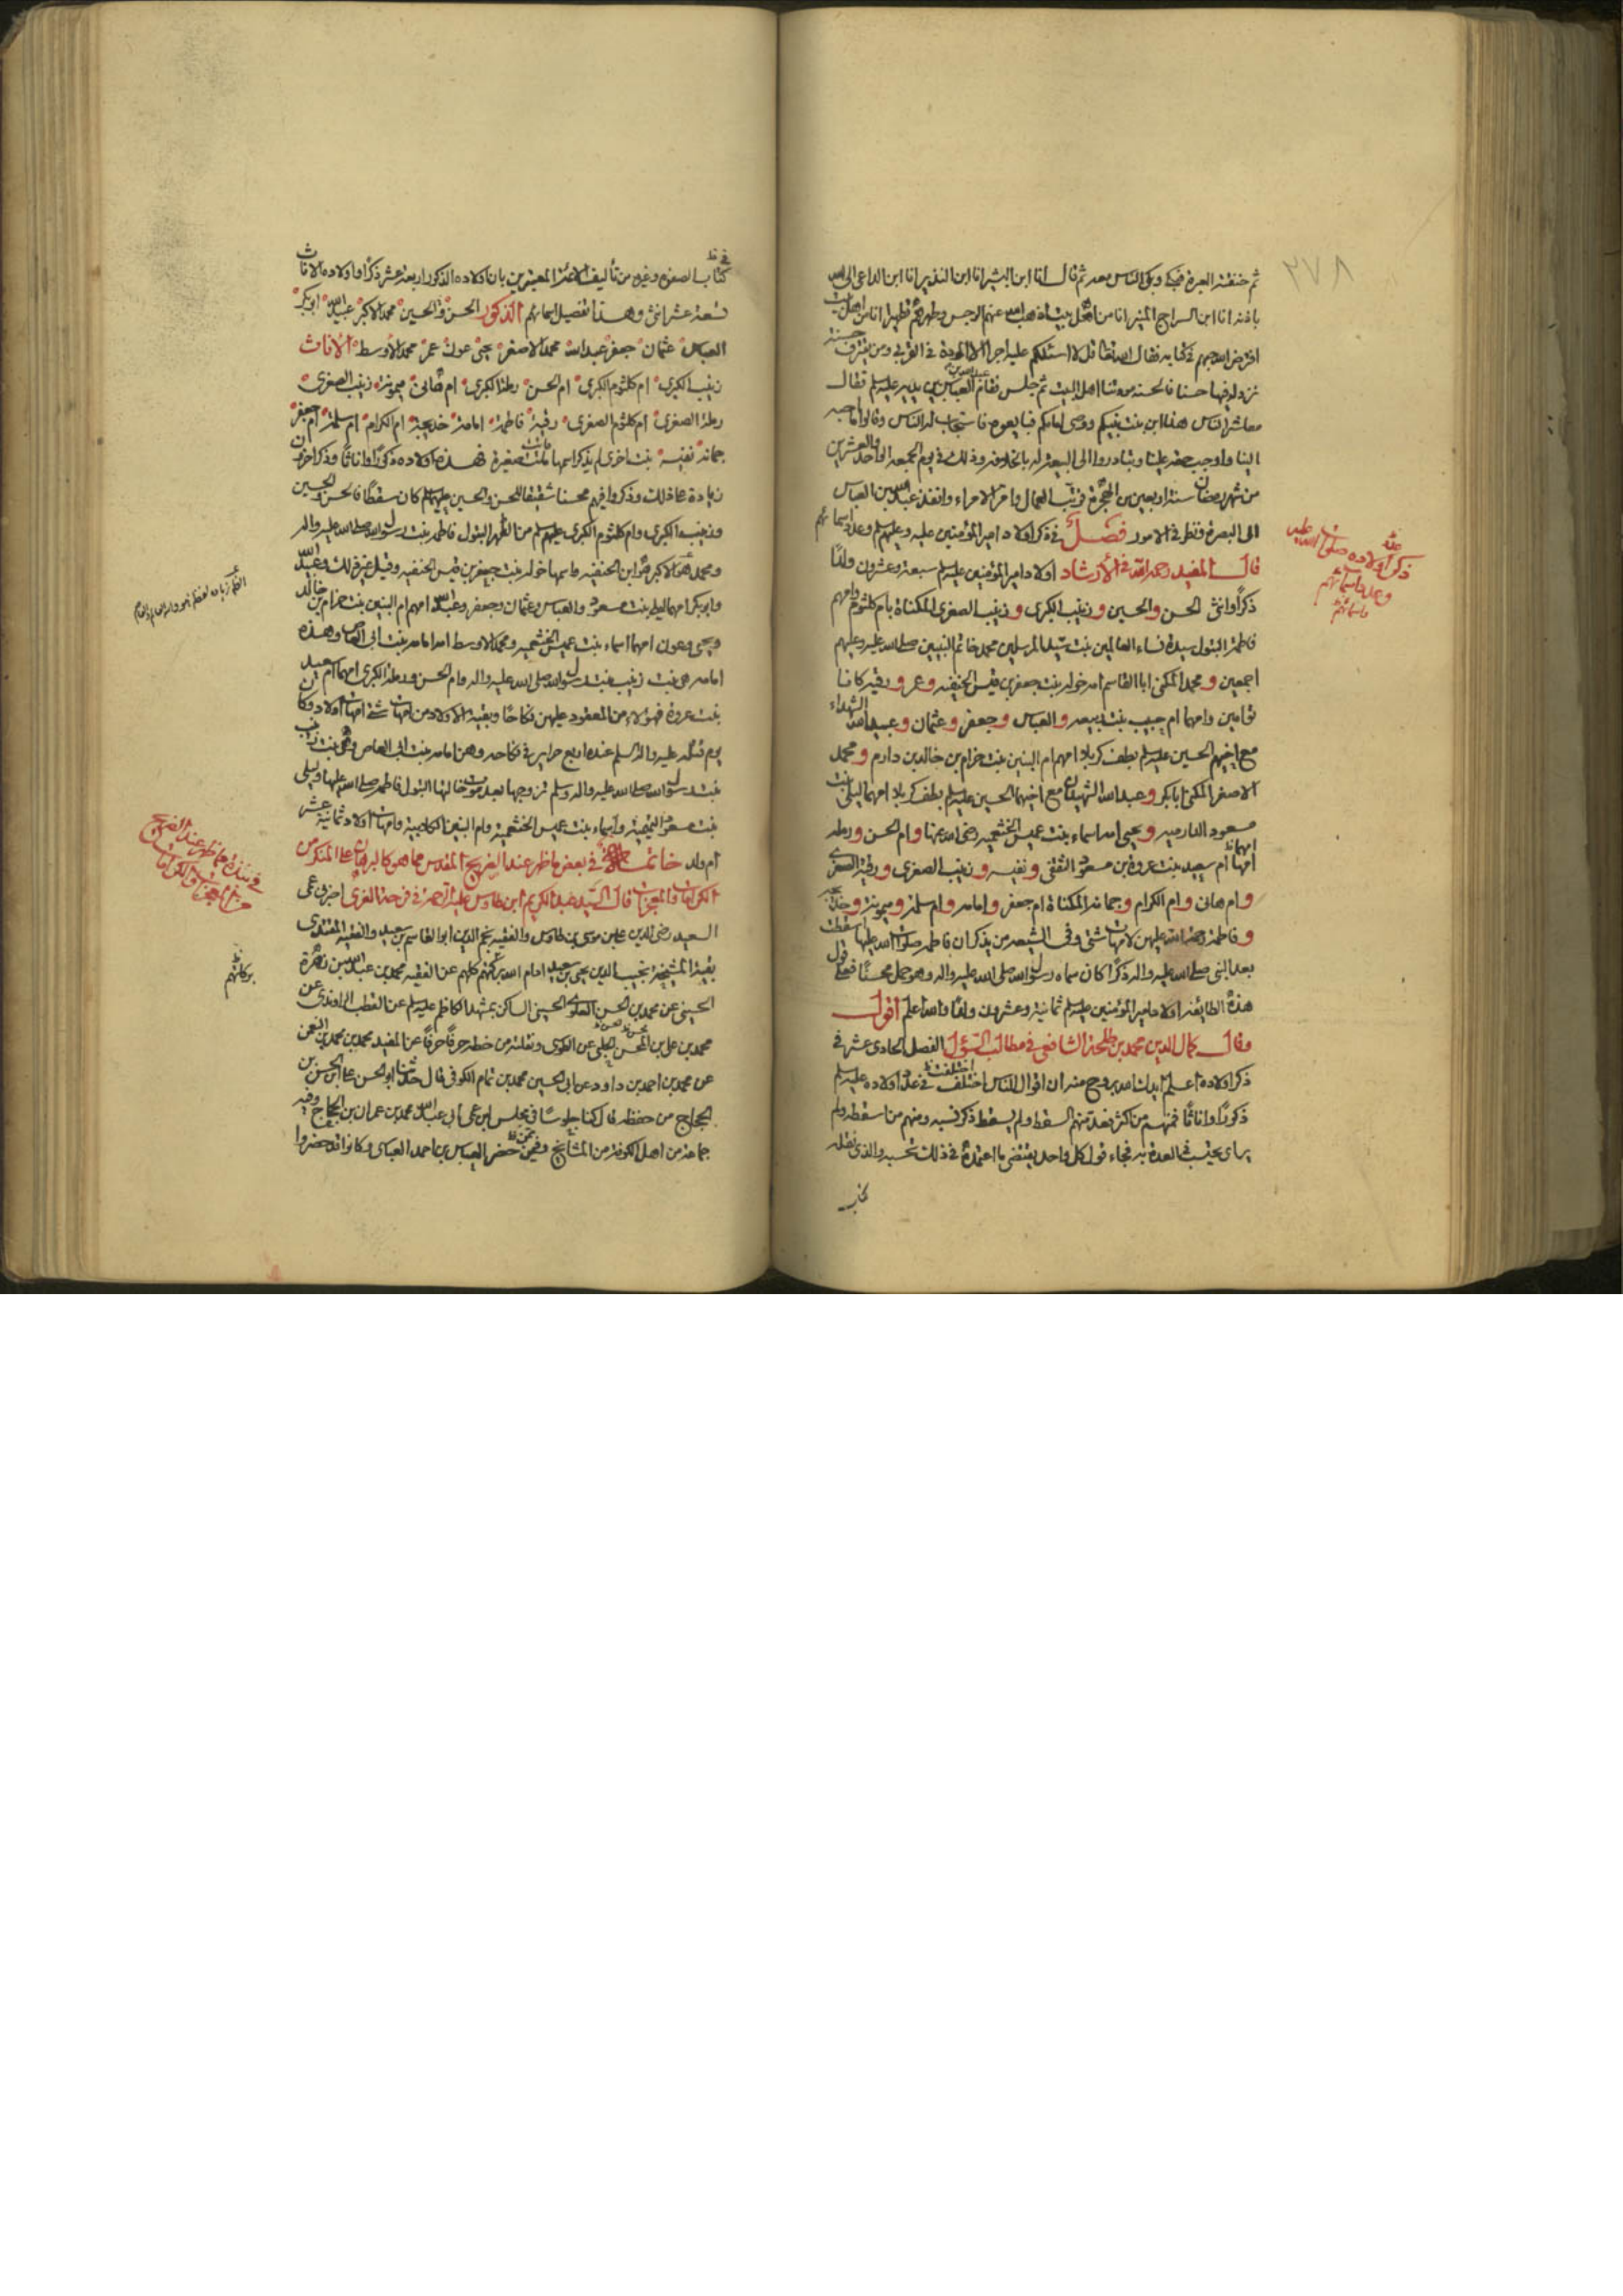 ٢٧٨
ثم خنقته العبرة فبكى وبكى الناس معه ثم قال انا ابن البشير انا ابن النذير انا ابن الداعى الى الله
باذنه انا ابن السراج المنير انا من اهل بيت اذهب الله عنهم الرجس وطهرهم تطهيرا انا من اهل بيت
افترض الله حبهم فى كتابه فقال الله تعالى قل لا اسئلكم عليه اجرا الا المودة فى القربى ومن يقترف حسنة
نزد له فيها حسنا فالحسنة مودتنا اهل البيت ثم جلس فقام عبد الله بن العباس بين يديه فقال
معاشر الناس هذا ابن بنت نبيكم ووصى امامكم فبايعوه فاستجاب له الناس وقالوا ما احبه
الينا واوجب حقه علينا وتبادروا الى البيعة له بالخلافة وذلك فى يوم الجمعة الواحد والعشرين
من شهر رمضان سنة اربعين من الهجرة فرتب العمال وامر الامراء وانفذ عبد الله بن العباس
الى البصرة ونظر فى الامور فصل فى ذكر اولاد امير المؤمنين عليه وعليهم السلم وعدد اسمائهم
قال المفيد رحمه الله فى الأرشاد اولاد امير المؤمنين عليه السلم سبعة وعشرون ولدًا
ذكرًا وانثى الحسن والحسين وزينب الكبرى وزينب الصغرى المكناة بام كلثوم وامهم
فاطمة البتول سيدة نساء العالمين بنت سيد المرسلين محمد خاتم النبيين صلى الله عليه وعليهم
اجمعين ومحمد المكنى ابا القاسم امه خولة بنت جعفر بن قيس الحنفيه وعمر ورقيه كانا
توامين وامهما ام حبيب بنت ربيعه والعباس وجعفر وعثمان وعبيد الله الشهداء
مع اخيهم الحسين عليه السلم بطف كربلا امهم ام البنين بنت حزام بن خالد بن دارم ومحمد
الاصغر المكنى ابابكر وعبد الله الشهيدان مع اخيهما الحسين عليه السلم بطف كربلا امهما ليلى بنت
مسعود الدارميه ويحيى امه اسماء بنت عميس الخثعميه رضى الله عنها وام الحسن ورمله
امهما ام سعيد بنت عروة بن مسعود الثقفى ونفيسه وزينب الصغرى ورقية الصغرى
وام هانى وام الكرام وجمانه المكناة ام جعفر وامامه وام سلمة وميمونة وخديجه
وفاطمة رحمة الله عليهن لامهات شتى وفى الشيعه من يذكر ان فاطمه صلوات الله عليها اسقطت
بعد النبى صلى الله عليه واله ذكرًا كان سماه رسول الله صلى الله عليه واله وهو حمل محسنًا فعلى قول
هذه الطائفه اولاد امير المؤمنين عليه السلم ثمانية وعشرون ولدًا والله اعلم اقول
وقال كمال الدين محمد بن طلحة الشافعى فى مطالب السؤل الفصل الحادى عشر فى
ذكر اولاده اعلم ايدك الله بروح منه ان اقوال الناس اختلفت فى عدد اولاده عليه السلم
ذكورًا واناثًا فمنهم من اكثر فعد منهم السقط ولم يسقط ذكر نسبه ومنهم من اسقطه ولم
ير اى يحتسب فى العدة به فجاء قول كل واحد بمقتضى ما اعتمده فى ذلك بحسبه والذى نقله
ذكر اولاده صلى الله عليه
وعدد اسمائهم
كتاب الصفوة وغيره من تأليف الائمة المعتبرين بان اولاده الذكور اربعة عشر ذكرًا واولاده الاناث
تسعة عشر انثى وهذا تفصيل اسمائهم الذكور الحسن والحسين محمد الاكبر عبيد الله ابوبكر
العباس عثمان جعفر عبد الله محمد الاصغر يحيى عون عمر محمد الاوسط الاناث
زينب الكبرى ام كلثوم الكبرى ام الحسن رملة الكبرى ام هانى ميمونة زينب الصغرى
رملة الصغرى ام كلثوم الصغرى رقية فاطمة امامة خديجة ام الكرام ام سلمة ام جعفر
جمانة نفيسة بنت اخرى لم يذكر اسمها ماتت صغيرة فهذه اولاده ذكورًا واناثًا وذكر اخرون
زيادة على ذلك وذكروا فيهم محسنا شقيقا للحسن والحسين عليهما السلم كان سقطًا فالحسن والحسين
وزينب الكبرى وام كلثوم الكبرى عليهم السلم من الطهر البتول فاطمه بنت رسول الله صلى الله عليه واله
ومحمد الاكبر هو ابن الحنفيه واسمها خوله بنت جعفر بن قيس الحنفيه وقيل غير ذلك وعبيد الله
وابوبكر امهما ليلى بنت مسعود والعباس وعثمان وجعفر وعبد الله امهم ام البنين بنت حزام بن خالد
ويحيى وعون امهما اسماء بنت عميس الخثعميه ومحمد الاوسط امه امامه بنت ابى العاص وهذه
امامه هى بنت زينب بنت رسول الله صلى الله عليه واله وام الحسن ورملة الكبرى امهما ام سعيد
بنت عروة فهؤلاء من المعقود عليهن نكاحًا وبقية الاولاد من امهات شتى امهات اولاد وكان
يوم قتله عليه السلم عنده اربع حراير فى نكاحه وهن امامه بنت ابى العاص وهى بنت زينب
بنت رسول الله صلى الله عليه واله وسلم تزوجها بعد موت خالتها البتول فاطمه صلى الله عليها وليلى
بنت مسعود التميمية واسماء بنت عميس الخثعمية وام البنين الكلابية وامهات اولاد ثمانية عشر
ام ولد خاتمه فى بعض ما ظهر عند الضريح المقدس مما هو كالبرهان على المنكر من
الكرامات والمعجزات قال السيد عبد الكريم ابن طاوس عليه الرحمة فى فرحة الغرى اخبرنى عمى
السعيد رضى الدين على بن موسى بن طاوس والفقيه نجم الدين ابو القاسم بن سعيد والفقيه المقتدى
بقية المشيخة نجيب الدين يحيى بن سعيد ادام الله بركتهم كلهم عن الفقيه محمد بن عبد الله بن زهرة
الحسينى عن محمد بن الحسن العلوى الحسينى الساكن بمشهد الكاظم عليه السلم عن القطب الراوندى عن
محمد بن على بن المحسن الحلبى عن الطوسى ونقلته من خطه حرفًا حرفًا عن المفيد محمد بن محمد بن النعمن
عن محمد بن احمد بن داود عن ابى الحسين محمد بن تمام الكوفى قال حدثنا ابو الحسن على بن الحسن بن
الحجاج من حفظه قال كنا جلوسًا فى مجلس ابن عمى ابى عبد الله محمد بن عمران بن الحجاج وفيه
جماعة من اهل الكوفة من المشايخ وفيمن حضر العباس بن احمد العباسى وكانوا قد حضروا
فى نبذة مما ظهر عند الضريح
من المعجزات والكرامات
بركاتهم